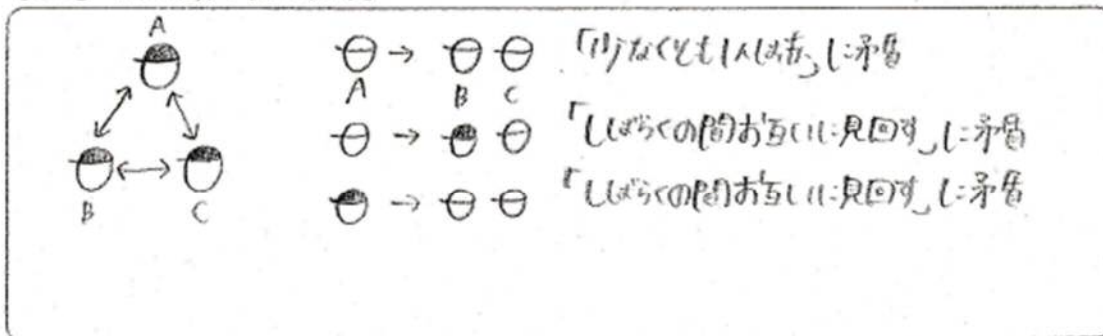 A
B C
A B C
「少なくとも1人は赤」に矛盾
「しばらくの間お互いに見回す」に矛盾
「しばらくの間お互いに見回す」に矛盾